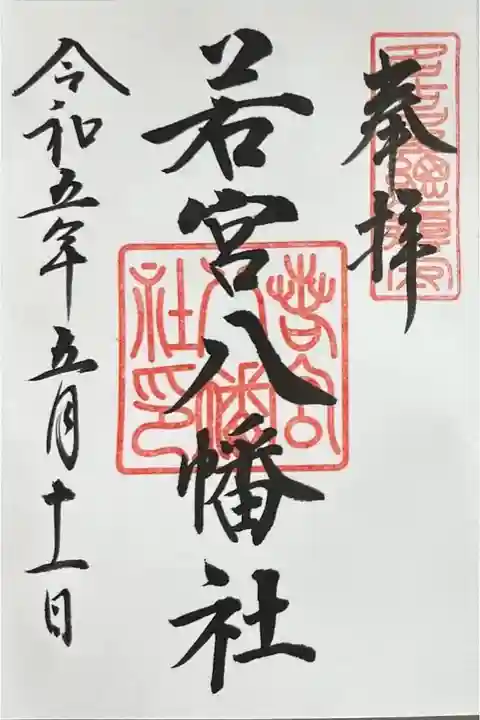 奉拝
若宮八幡社
若宮八幡社印
令和五年五月十一日